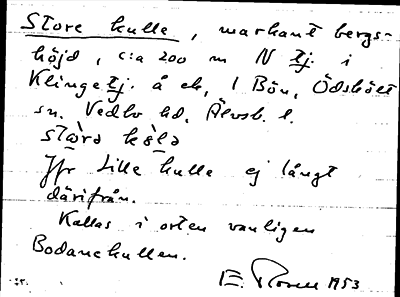 Store kulle, markant bergs-
höjd, c:a 200 m N tj. i
Klingetj. å ek, 1 Bön, Ödsköl
sn. Vedbo hd, Älvsb. l.
Jfr Lille kulle ej långt
därifrån.
Kallas i orten vanligen
Bodanekullen.
E. 1953